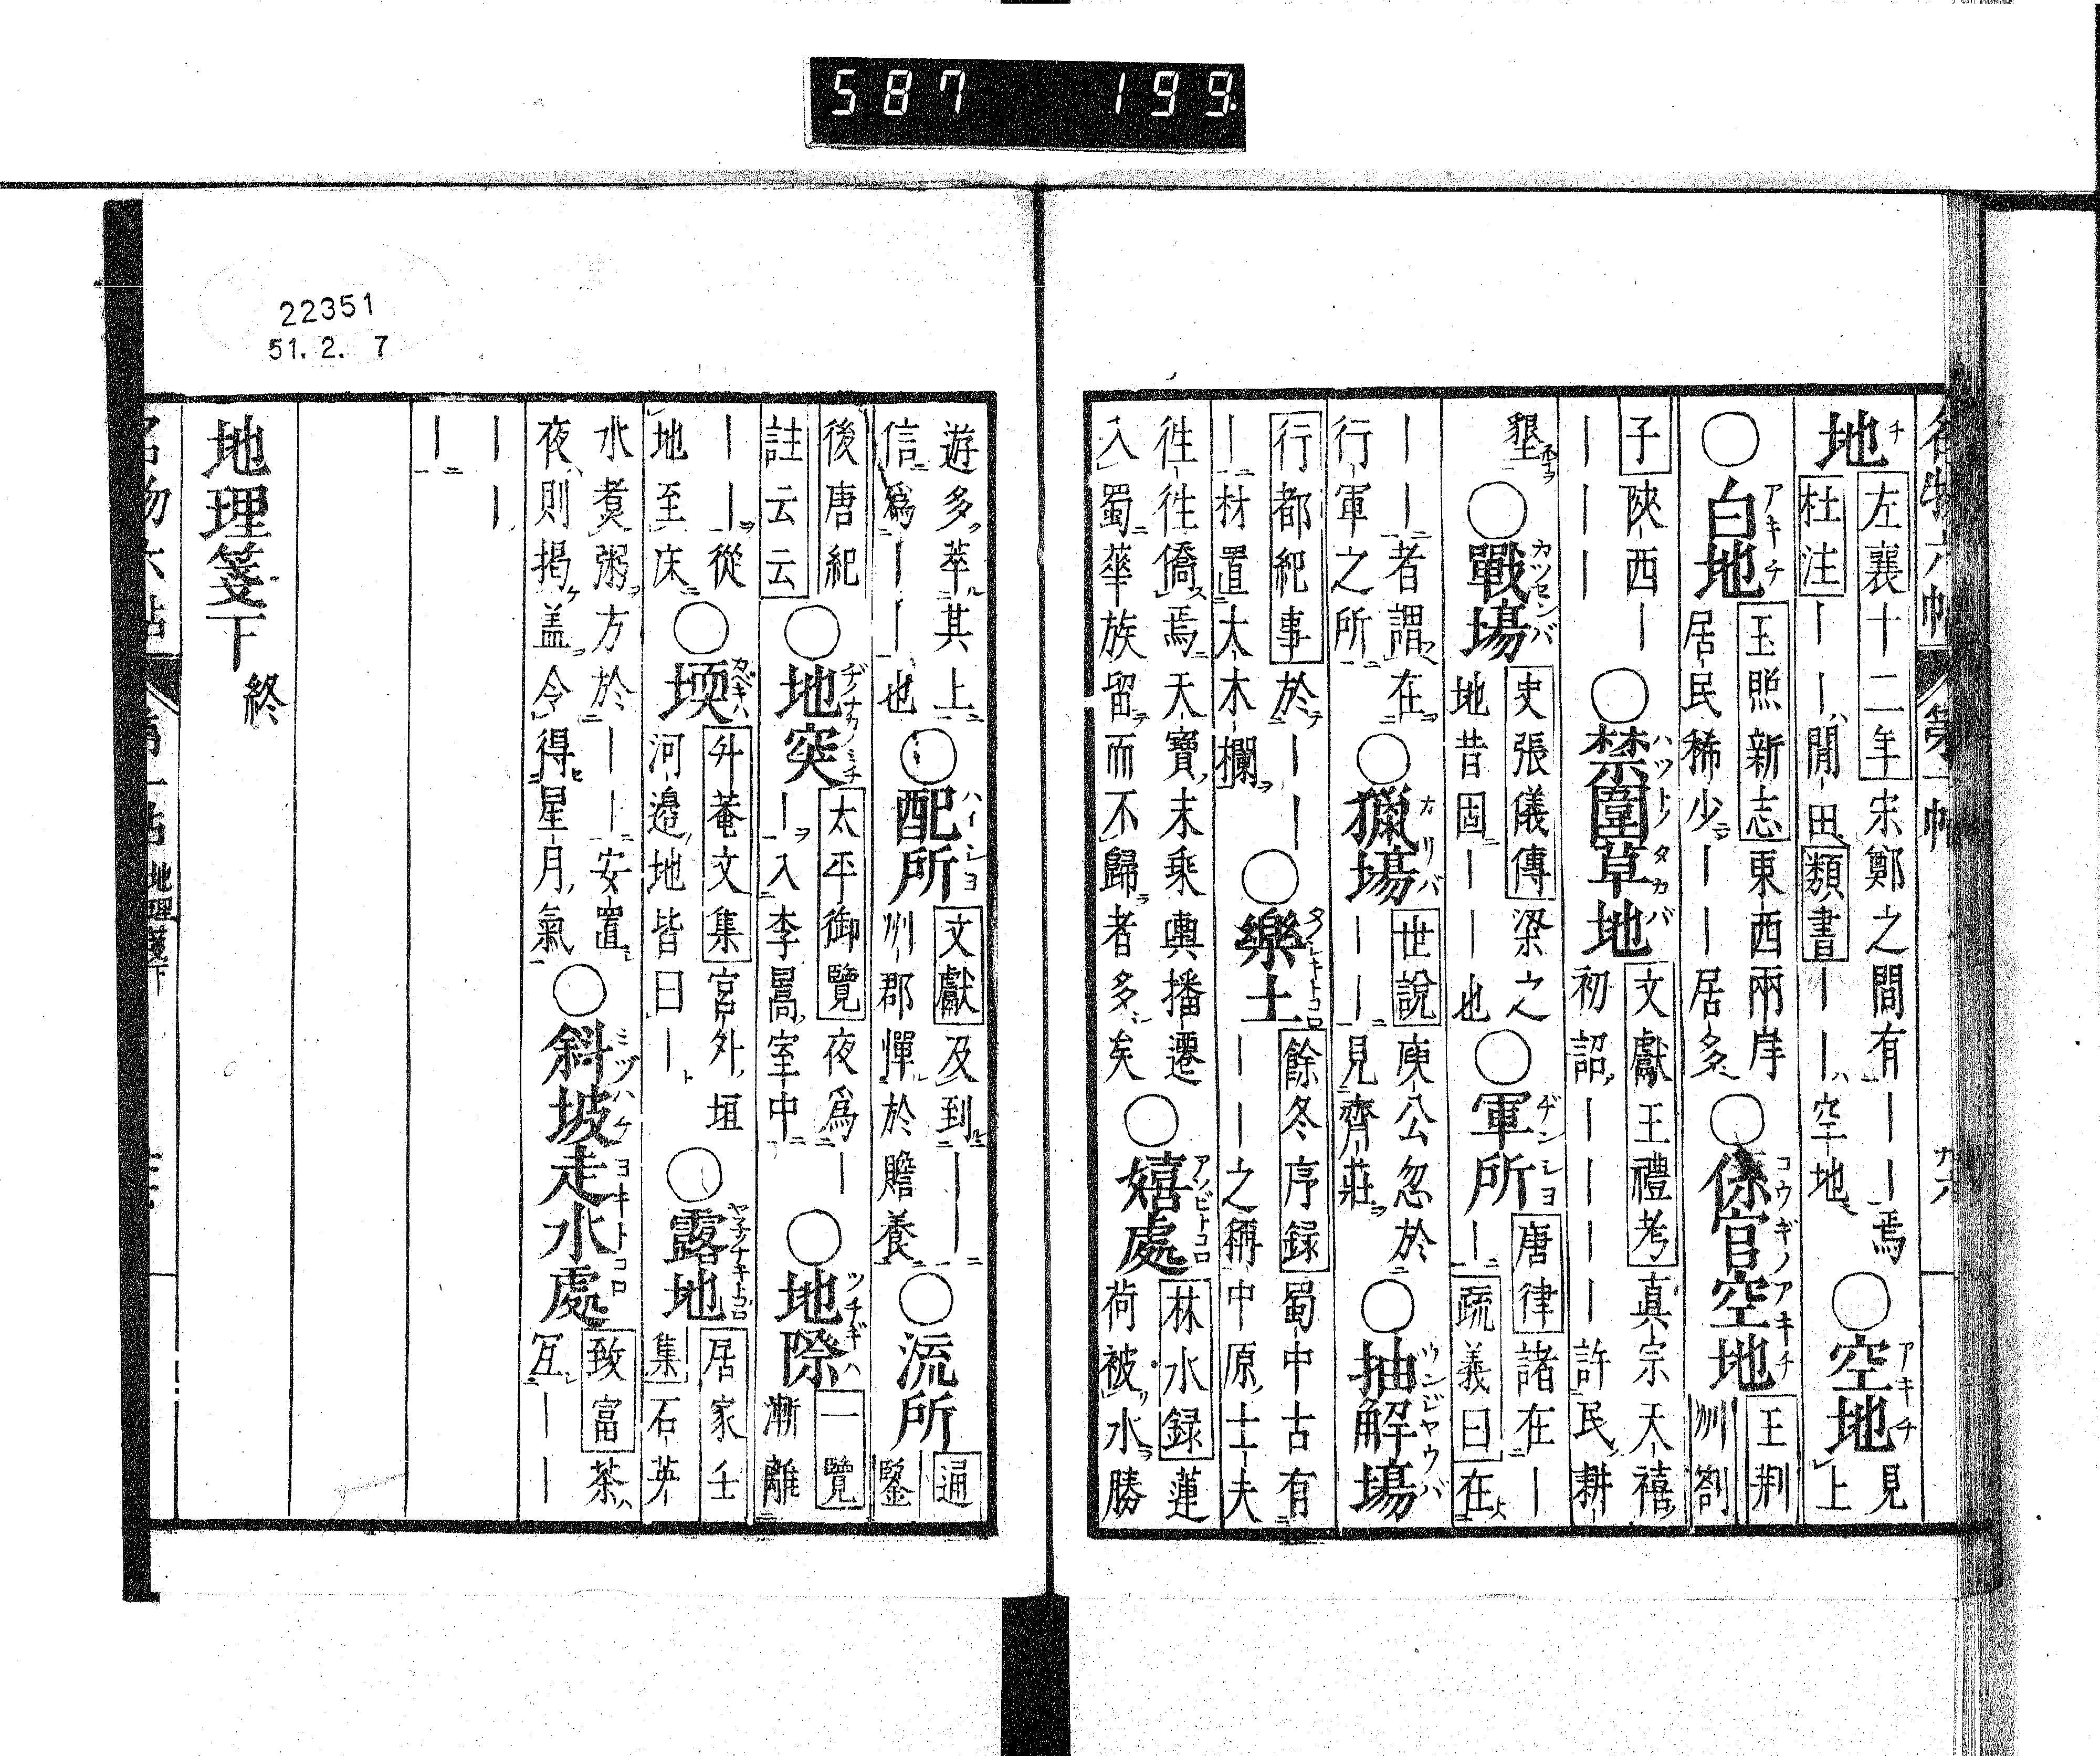 587 199
名物六帖 第一帖 九六
地 左襄十二年宋鄭之間有｜｜焉
杜注｜｜閒田類書｜｜空地
○空地 見上
○白地 玉照新志東西兩岸
居民稀少｜｜居多
○係官空地 王荆
州劄
子陝西｜
｜｜｜
○禁圍草地 文獻王禮考真宗天禧
初詔｜｜｜｜許民耕
墾
○戰場 史張儀傳梁之
地昔固｜｜也
○軍所 唐律諸在｜
｜疏義曰在
｜｜者謂在
行軍之所
○獵場 世說庾公忽於
｜｜見齊莊
○抽解場
行都紀事於｜｜
｜材置大木欄
○樂土 餘冬序録蜀中古有
｜｜之稱中原士夫
往往僑焉天寶末乘輿播遷
入蜀華族留而不歸者多矣
○嬉處 林水録蓮
荷被水勝
22351
51. 2. 7
遊多萃其上
信爲｜｜也
○配所 文獻及到｜｜
州郡憚於贍養
○流所 通
鑒
後唐紀
註云云
○地突 太平御覽夜爲｜
｜入李暠室中
○地際 一覽
漸離
｜｜從
地至床
○堧 升菴文集宮外垣
河邉地皆曰｜
○露地 居家士
集石英
水煮粥方於｜｜安置
夜則揭盖令得星月氣
○斜坡走水處 致富茶
冝｜｜
｜｜
｜
地理箋下 終
名物六帖 第一帖 地理箋下